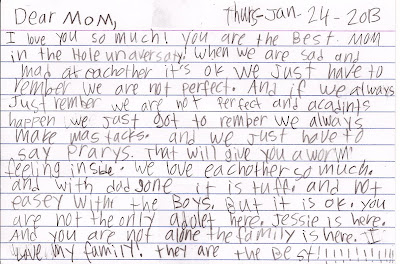 Dear Mom, Thurs-Jan-24-2013
I love you so much! you are the Best Mom
in the Hole unaversaty! When we are sad and
mad at eachother it's ok we just have to
rember we are not perfect. And if we always
Just rember we are not perfect and acadints
happen we Just got to rember we always
make mastacks. and we Just have to
say Prarys. That will give you a worm
feeling inside. we love eachother so much.
and with dad gone it is tuff. and not
easey with the Boys. But it is ok. you
are not the only adolet here. Jessie is here.
And you are not alone the family is here. I
love my family. they are the Best!!!!!!!!!!!